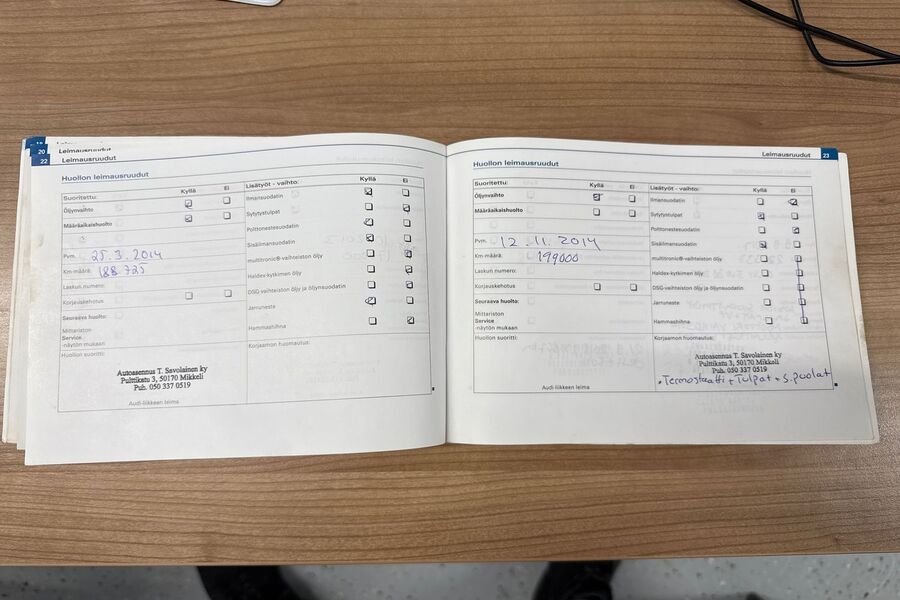 20 Leimausruudut
22 Leimausruudut
Huollon leimausruudut
Suoritettu: Kyllä Ei
Öljynvaihto
Määräaikaishuolto
Pvm. 25.3.2014
Km-määrä: 188 725
Laskun numero:
Korjauskehotus
Seuraava huolto:
Mittariston
Service
-näytön mukaan
Huollon suoritti:
Autoasennus T. Savolainen ky
Pulttikatu 3, 50170 Mikkeli
Puh. 050 337 0519
Audi-liikkeen leima
Lisätyöt - vaihto: Kyllä Ei
Ilmansuodatin
Sytytystulpat
Polttonestesuodatin
Sisäilmansuodatin
multitronic®-vaihteiston öljy
Haldex-kytkimen öljy
DSG-vaihteiston öljy ja öljynsuodatin
Jarruneste
Hammashihna
Korjaamon huomautus:
Leimausruudut 23
Huollon leimausruudut
Suoritettu: Kyllä Ei
Öljynvaihto
Määräaikaishuolto
Pvm. 12.11.2014
Km-määrä: 199000
Laskun numero:
Korjauskehotus
Seuraava huolto:
Mittariston
Service
-näytön mukaan
Huollon suoritti:
Audi-liikkeen leima
Lisätyöt - vaihto: Kyllä Ei
Ilmansuodatin
Sytytystulpat
Polttonestesuodatin
Sisäilmansuodatin
multitronic®-vaihteiston öljy
Haldex-kytkimen öljy
DSG-vaihteiston öljy ja öljynsuodatin
Jarruneste
Hammashihna
Korjaamon huomautus:
Autoasennus T. Savolainen ky
Pulttikatu 3, 50170 Mikkeli
Puh. 050 337 0519
• Termostaatti + Tulpat + S.puolat